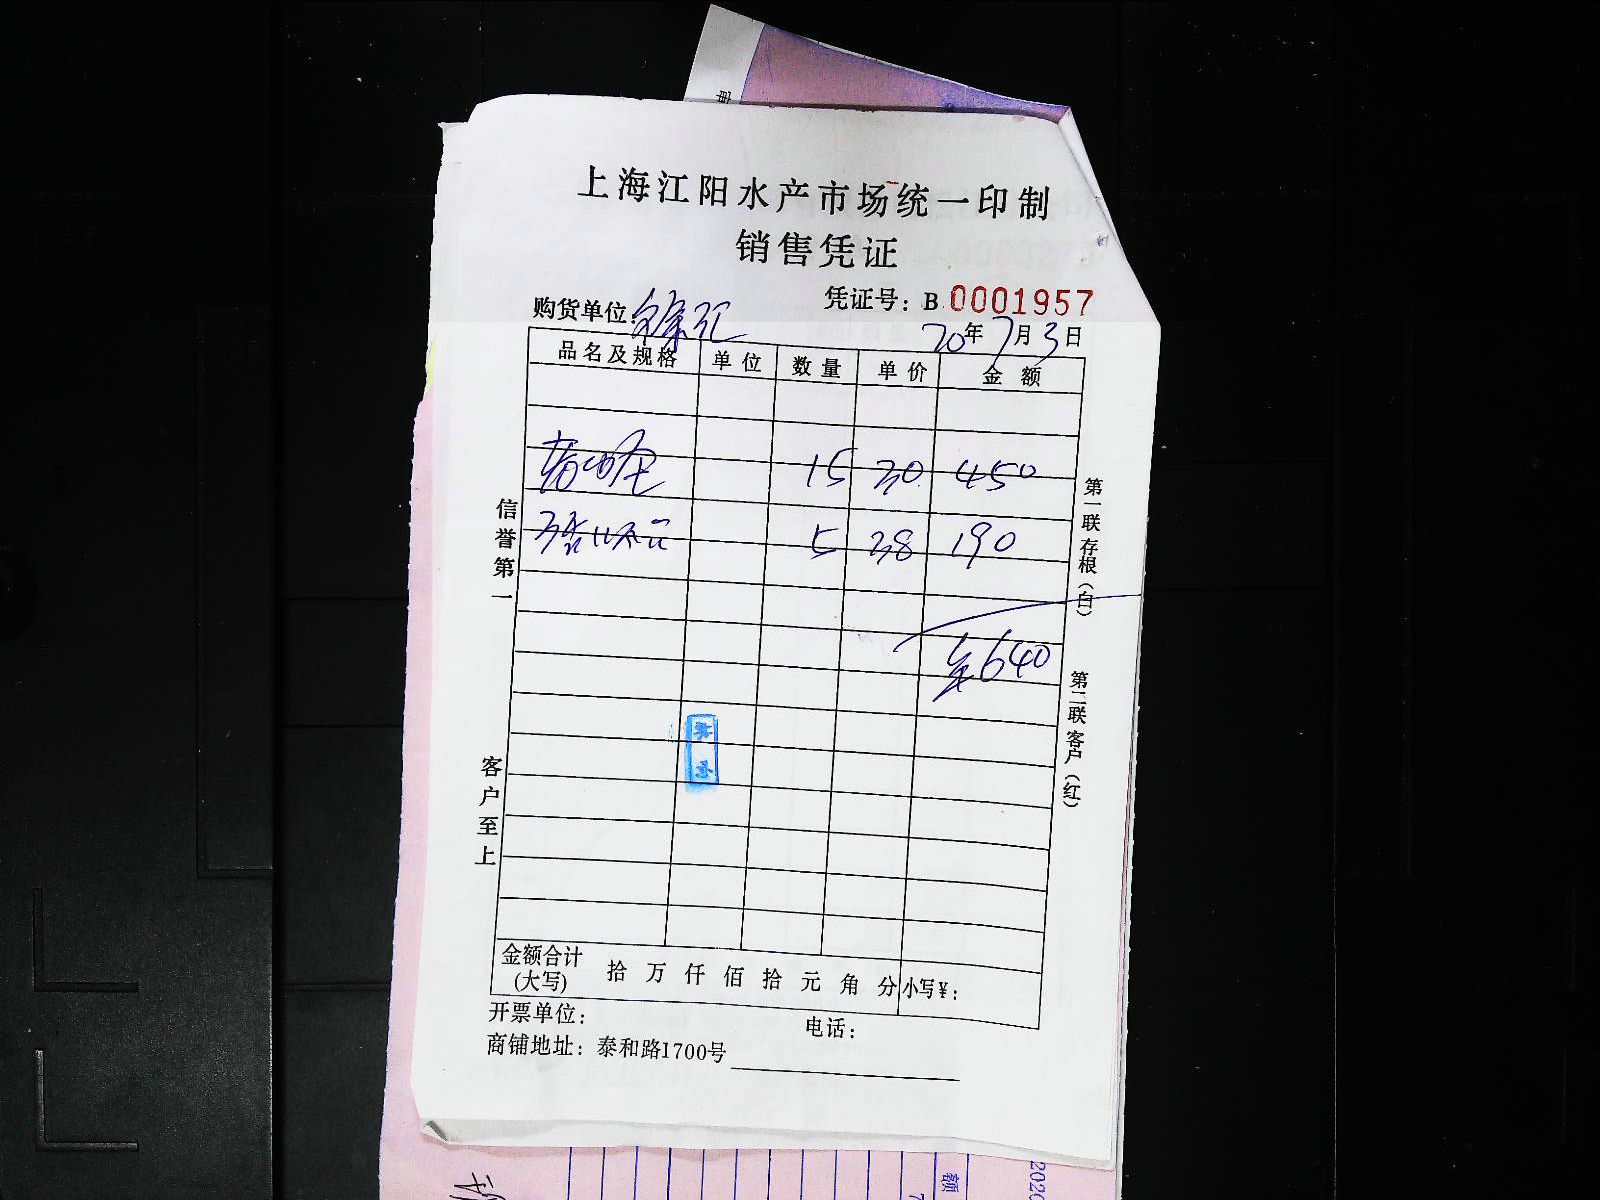 上海江阳水产市场统一印制
销售凭证
凭证号：B 0001957
购货单位：
20年7月3日
品名及规格 单位 数量 单价 金额
15 30 450
5 38 190
¥640
信誉第一
客户至上
第一联存根（白）
第二联客户（红）
金额合计（大写） 拾 万 仟 佰 拾 元 角 分 小写¥：
开票单位： 电话：
商铺地址：泰和路1700号
额
2020